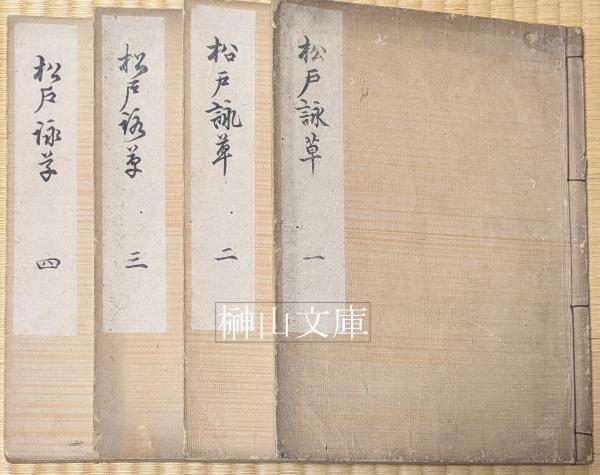 松戸詠草
一
松戸詠草
二
松戸詠草
三
松戸詠草
四
榊山文庫